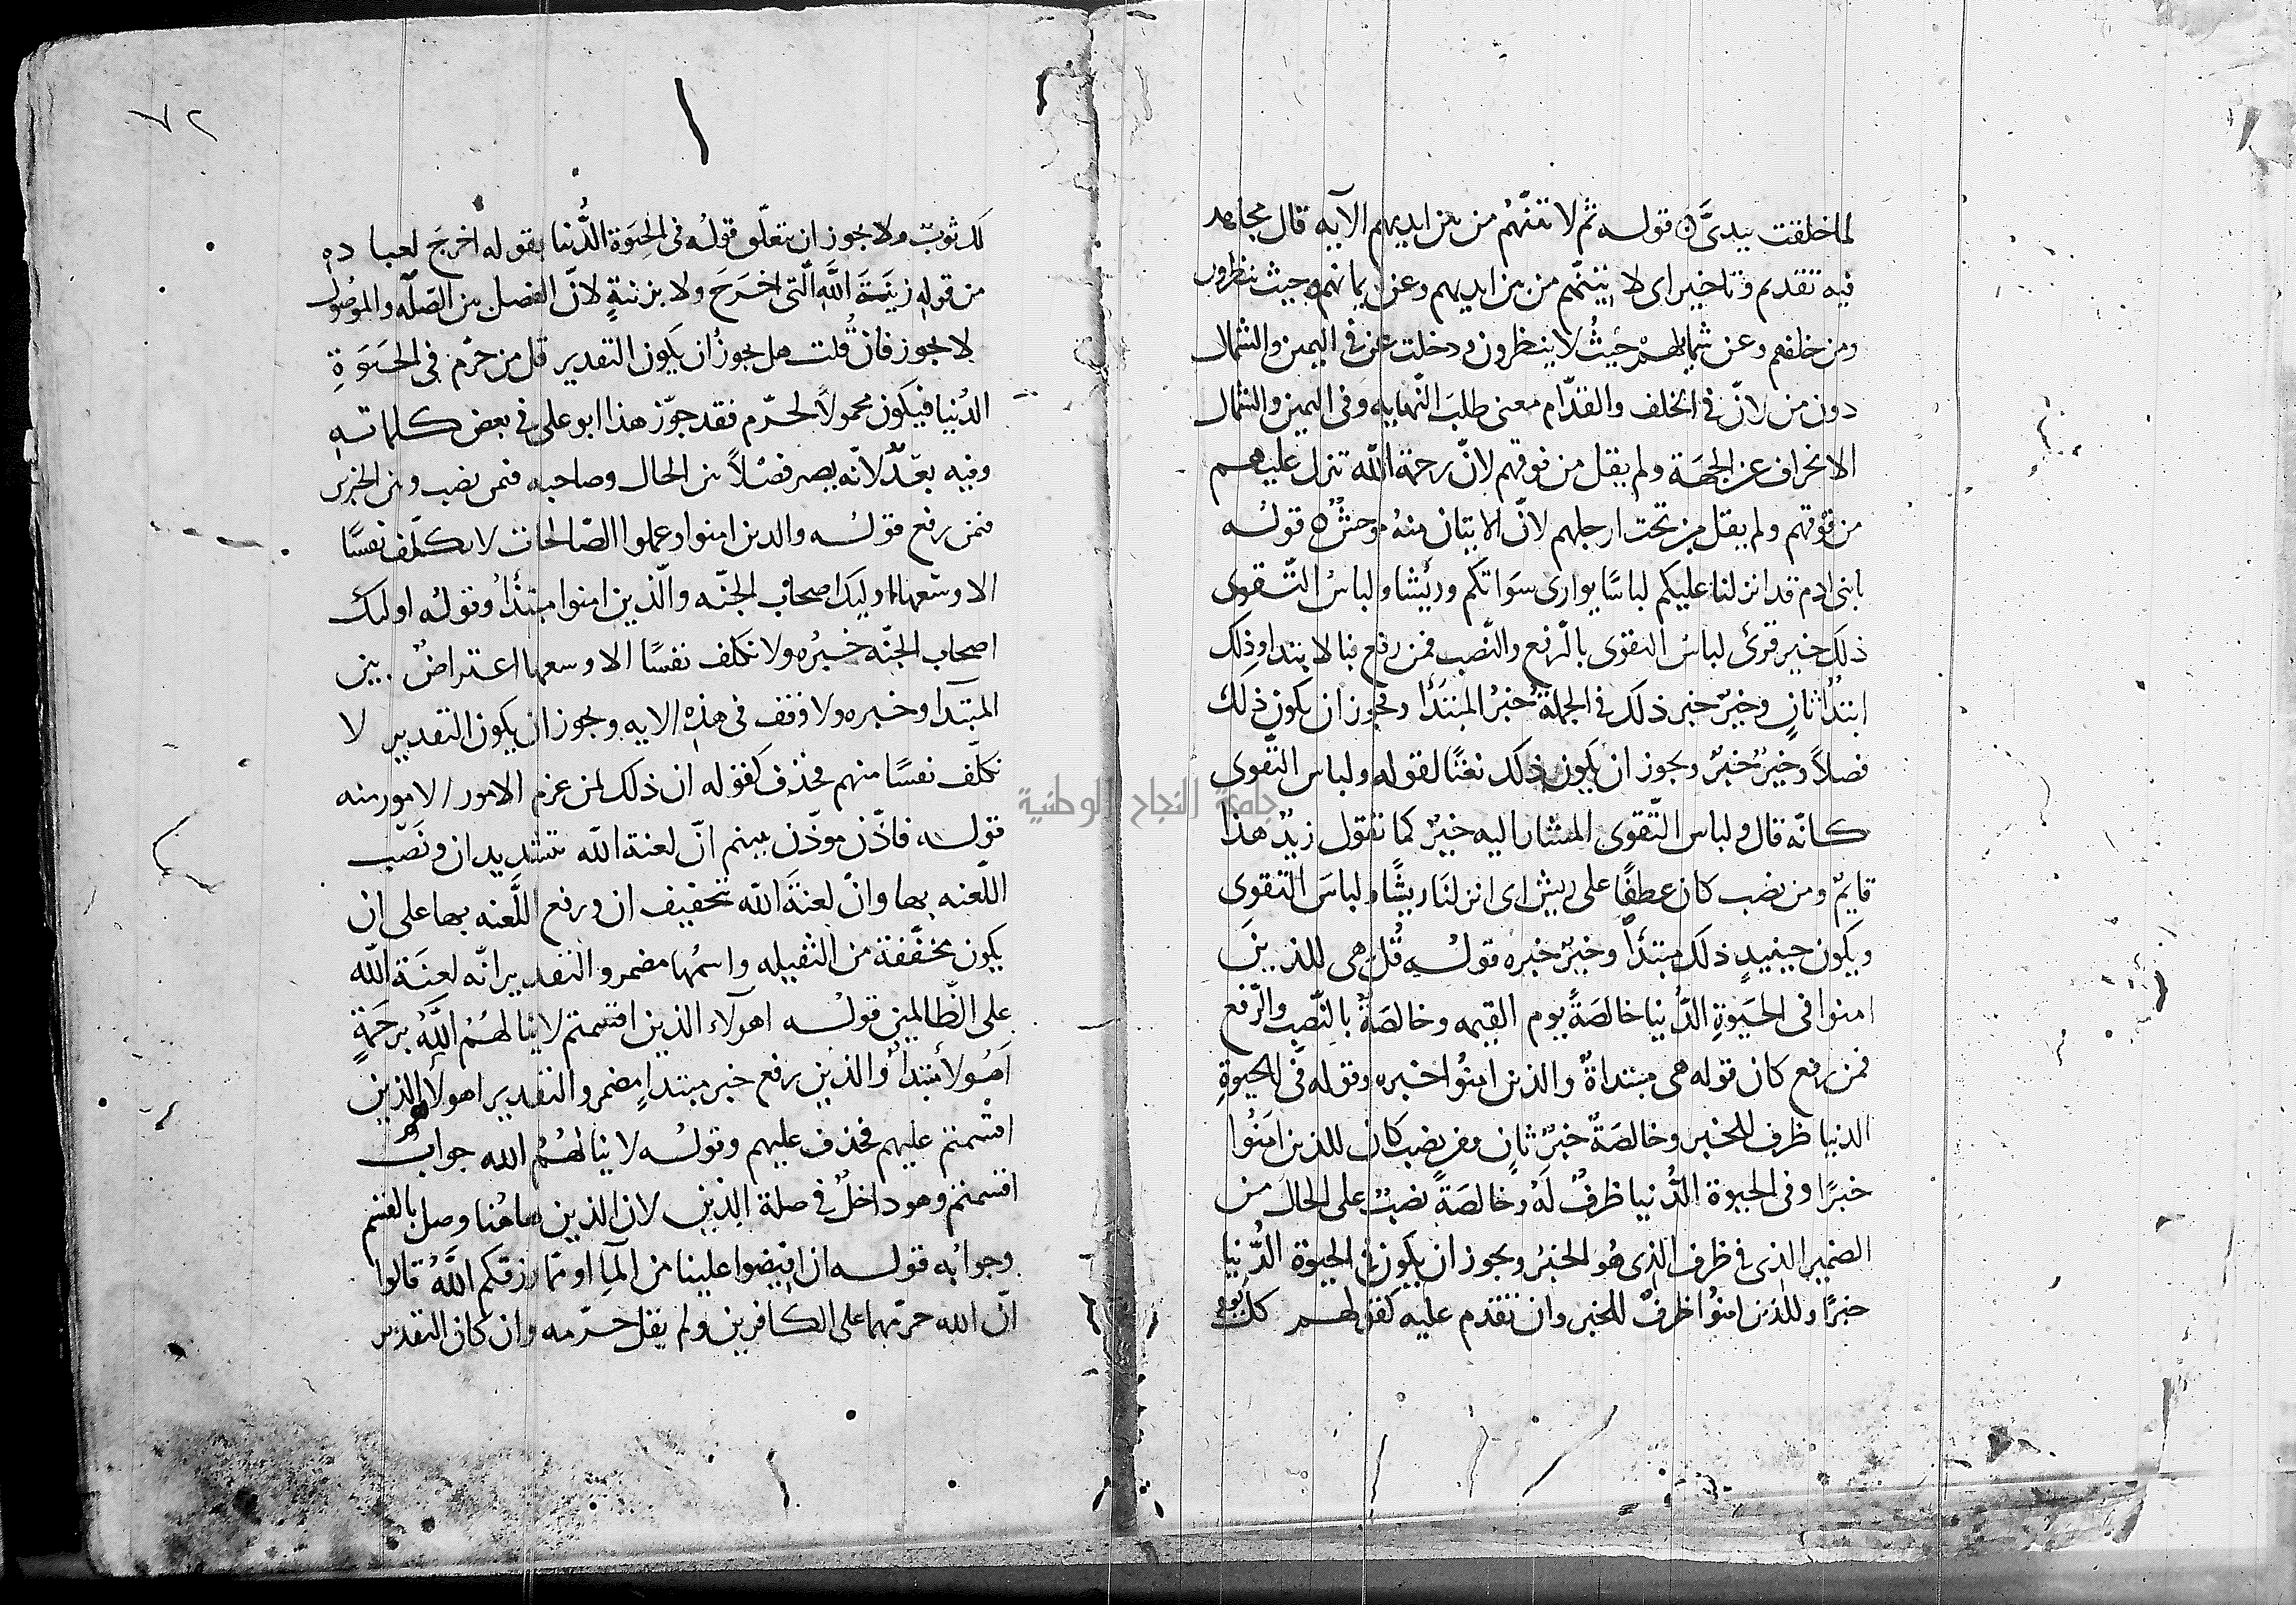 لما خلقت بيدىّ ٥ قوله ثم لاتينّهُم من بين ايديهم الآيه قال مجاهد
فيه تقديم وتاخير اى لاتينّهم من بين ايديهم وعن ايمانهم حيث ينظرون
ومن خلفهم وعن شمايلهم حيثُ لا ينظرون ودخلت عن فى اليمين والشمال
دون من لانّ فى الخلف والقدّام معنى طلب النّهايه وفى اليمين والشمال
الانحراف عن الجهَة ولم يقل من فوقهم لانّ رحمة الله تنزل عليهم
من فوقهم ولم يقل من تحت ارجلهم لانّ الاتيان منهُ موحشٌ ٥ قولُه
يابنى ادم قد انزلنا عليكم لباسًا يوارى سَواتكم وريْشا ولباسُ التّقوى
ذلك خير قرئ لباسُ التقوى بالرّفع والنّصب فمن رفع فبالابتدا وذلك
ابتدأ ثانٍ وخيرٌ خبر ذلك فى الجملة خبرُ المبتدَأ ويجوز ان يكون ذلك
فصلاً وخيرٌ خبرٌ ويجوز ان يكون ذلك نعتًا لقوله ولباس التّقوى
كانّه قال ولباس التّقوى المشار اليه خيرٌ كما تقول زيدٌ هذا
قايمٌ ومن نصب كان عطفًا على ريش اى انزلنَا ريشًا ولباسَ التقوى
ويكون حينيدٍ ذلك مبتدأً وخيرٌ خبره قولُه قُل هى للذينَ
امنوا فى الحيَوةِ الدُّنيا خالصَةً يوم القيمه وخالصَةٌ بالنّصب والرّفع
فمن رفع كان قوله هى مبتداةٌ والذين امنُوا خبره وقوله فى الحيوةِ
الدنيا ظرف للخبر وخالصَةٌ خبرٌ ثانٍ ومن نصب كان للذين امَنُوا
خبرًا وفى الحيوة الدُّنيا ظرفٌ لَهُ وخالصَةً نصبٌ على الحال من
الضمير الذى فى ظرف الذى هُو الخبرُ ويجوز ان يكون فى الحيوة الدُّنيا
خبرًا وللذين امنُوا ظرفٌ للخبر وان تقدم عليه كقولهم كل يومٍ
لك ثوبٌ ولا يجوز ان يتعلّق قولُه فى الحيَوة الدُّنيا بقوله اخرجَ لعباده
من قوله زينَةَ اللهِ الّتى اخرَجَ ولا بزينةٍ لانّ الفصل بين الصّلَه والموصُول
لا يجوز فان قُلت هل يجوزُ ان يكون التقدير قل من حرّم فى الحيَوَةِ
الدُنيا فيكون محمولاً لحرّم فقد جوّز هذا ابو على فى بعض كلماته
وفيه بعدٌ لانّه يصير فصْلاً بين الحال وصاحبه فمن نصب وبين الخبرين
فمن رفع قولُه والذين امنوا وعملوا الصّالحات لا نكلّف نفسًا
الا وسْعهَا اوليك اصحَابُ الجنّه والّذين امنوا مبتدأٌ وقولُه اوليك
اصحاب الجنّه خبرُه ولا نكلف نفسًا الا وسعها اعتراضٌ بين
المبتدأ وخبره ولا وقف فى هذه الايه ويجوز ان يكون التقدير لا
نكلّف نفسًا منهم فحذف كقوله ان ذلك لمن عزم الامور الامور منه
قوله فاذّن موذّن بينهم انّ لعنة الله بتشديد ان ونَصْب
اللّعنه بها وانْ لعنَةُ الله بتخفيف ان ورفع اللَّعنه بها على ان
يكون مخفّفة من الثقيله واسمُها مضمر والتقدير انّه لعنَة الله
على الظّالمين قولُه اهولآء الذين اقسمتم لا ينالهُمُ اللهُ برحمَةٍ
اهَولأ مبتدأ والذين رفع خبر مبتدإٍ مضمر والتقدير اهولآ هم الذين
اقسَمتم عليهم فحذف عليهم وقولُه لا ينالهُمُ الله جوابُ
اقسمتم وهو داخلٌ فى صلة الذين لان الذين هاهُنا وصل بالقسم
وجوابُه قوله ان افيضوا علينا من المآِ او ممّا رزقكم اللهُ قالوا
انّ الله حرّمهما على الكافرين ولم يقل حرّمه وان كان التقدير
٧٢
جامعة النجاح الوطنية